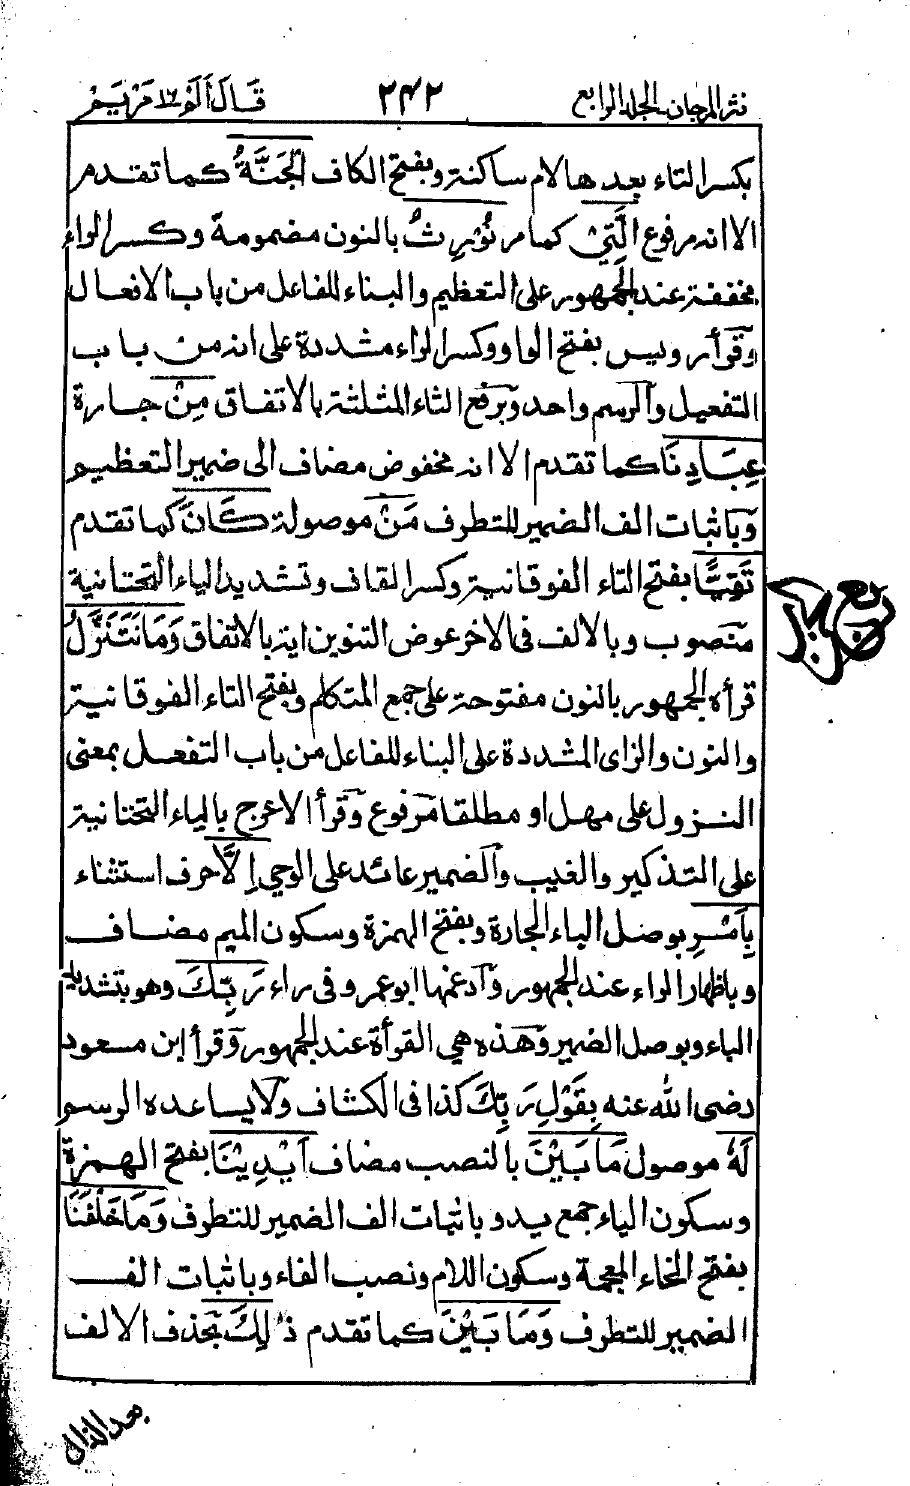 نثر المرجان الجلد الرابع ٢٤٢ قَالَ أَلَمْ ١٦ مَرْيَمْ
بكسر التاء بعدها لام ساكنة وبفتح الكاف الْجَنَّةُ كما تقدم
الا انه مرفوع الَّتِيْ كما مر نُوْرِثُ بالنون مضمومة وكسر الراء
مخففة عند الجمهور على التعظيم والبناء للفاعل من باب الافعال
وقرأ رويس بفتح الواو وكسر الراء مشددة على انه من باب
التفعيل والرسم واحد وبرفع الثاء المثلثة بالاتفاق مِنْ جارة
عِبَادِنَا كما تقدم الا انه مخفوض مضاف الى ضمير التعظيم
وباثبات الف الضمير للتطرف مَنْ موصولة كَانَ كما تقدم
تَقِيًّا بفتح التاء الفوقانية وكسر القاف وتشديد الياء التحتانية
منصوب وبالالف فى الاخر عوض التنوين اية بالاتفاق وَمَا نَتَنَزَّلُ
قرأه الجمهور بالنون مفتوحة على جمع المتكلم وبفتح التاء الفوقانية
والنون والزاى المشددة على البناء للفاعل من باب التفعل بمعنى
النزول على مهل او مطلقا مرفوع وقرأ الاعرج بالياء التحتانية
على التذكير والغيب والضمير عائد على الوحي إِلَّا حرف استثناء
بِأَمْرِ بوصل الباء الجارة وبفتح الهمزة وسكون الميم مضاف
وباظهار الراء عند الجمهور وادغمها ابو عمرو فى راء رَبِّكَ وهو بتشديد
الباء وبوصل الضمير وهذه هي القرأة عند الجمهور وقرأ ابن مسعود
رضى الله عنه بِقَوْلِ رَبِّكَ كذا فى الكشاف ولا يساعده الرسم
لَهُ موصول مَا بَيْنَ بالنصب مضاف أَيْدِيْنَا بفتح الهمزة
وسكون الياء جمع يد وباثبات الف الضمير للتطرف وَمَا خَلْفَنَا
بفتح الخاء المعجمة وسكون اللام ونصب الفاء وباثبات الف
الضمير للتطرف وَمَا بَيْنَ كما تقدم ذٰلِكَ بحذف الالف
بعد الذال